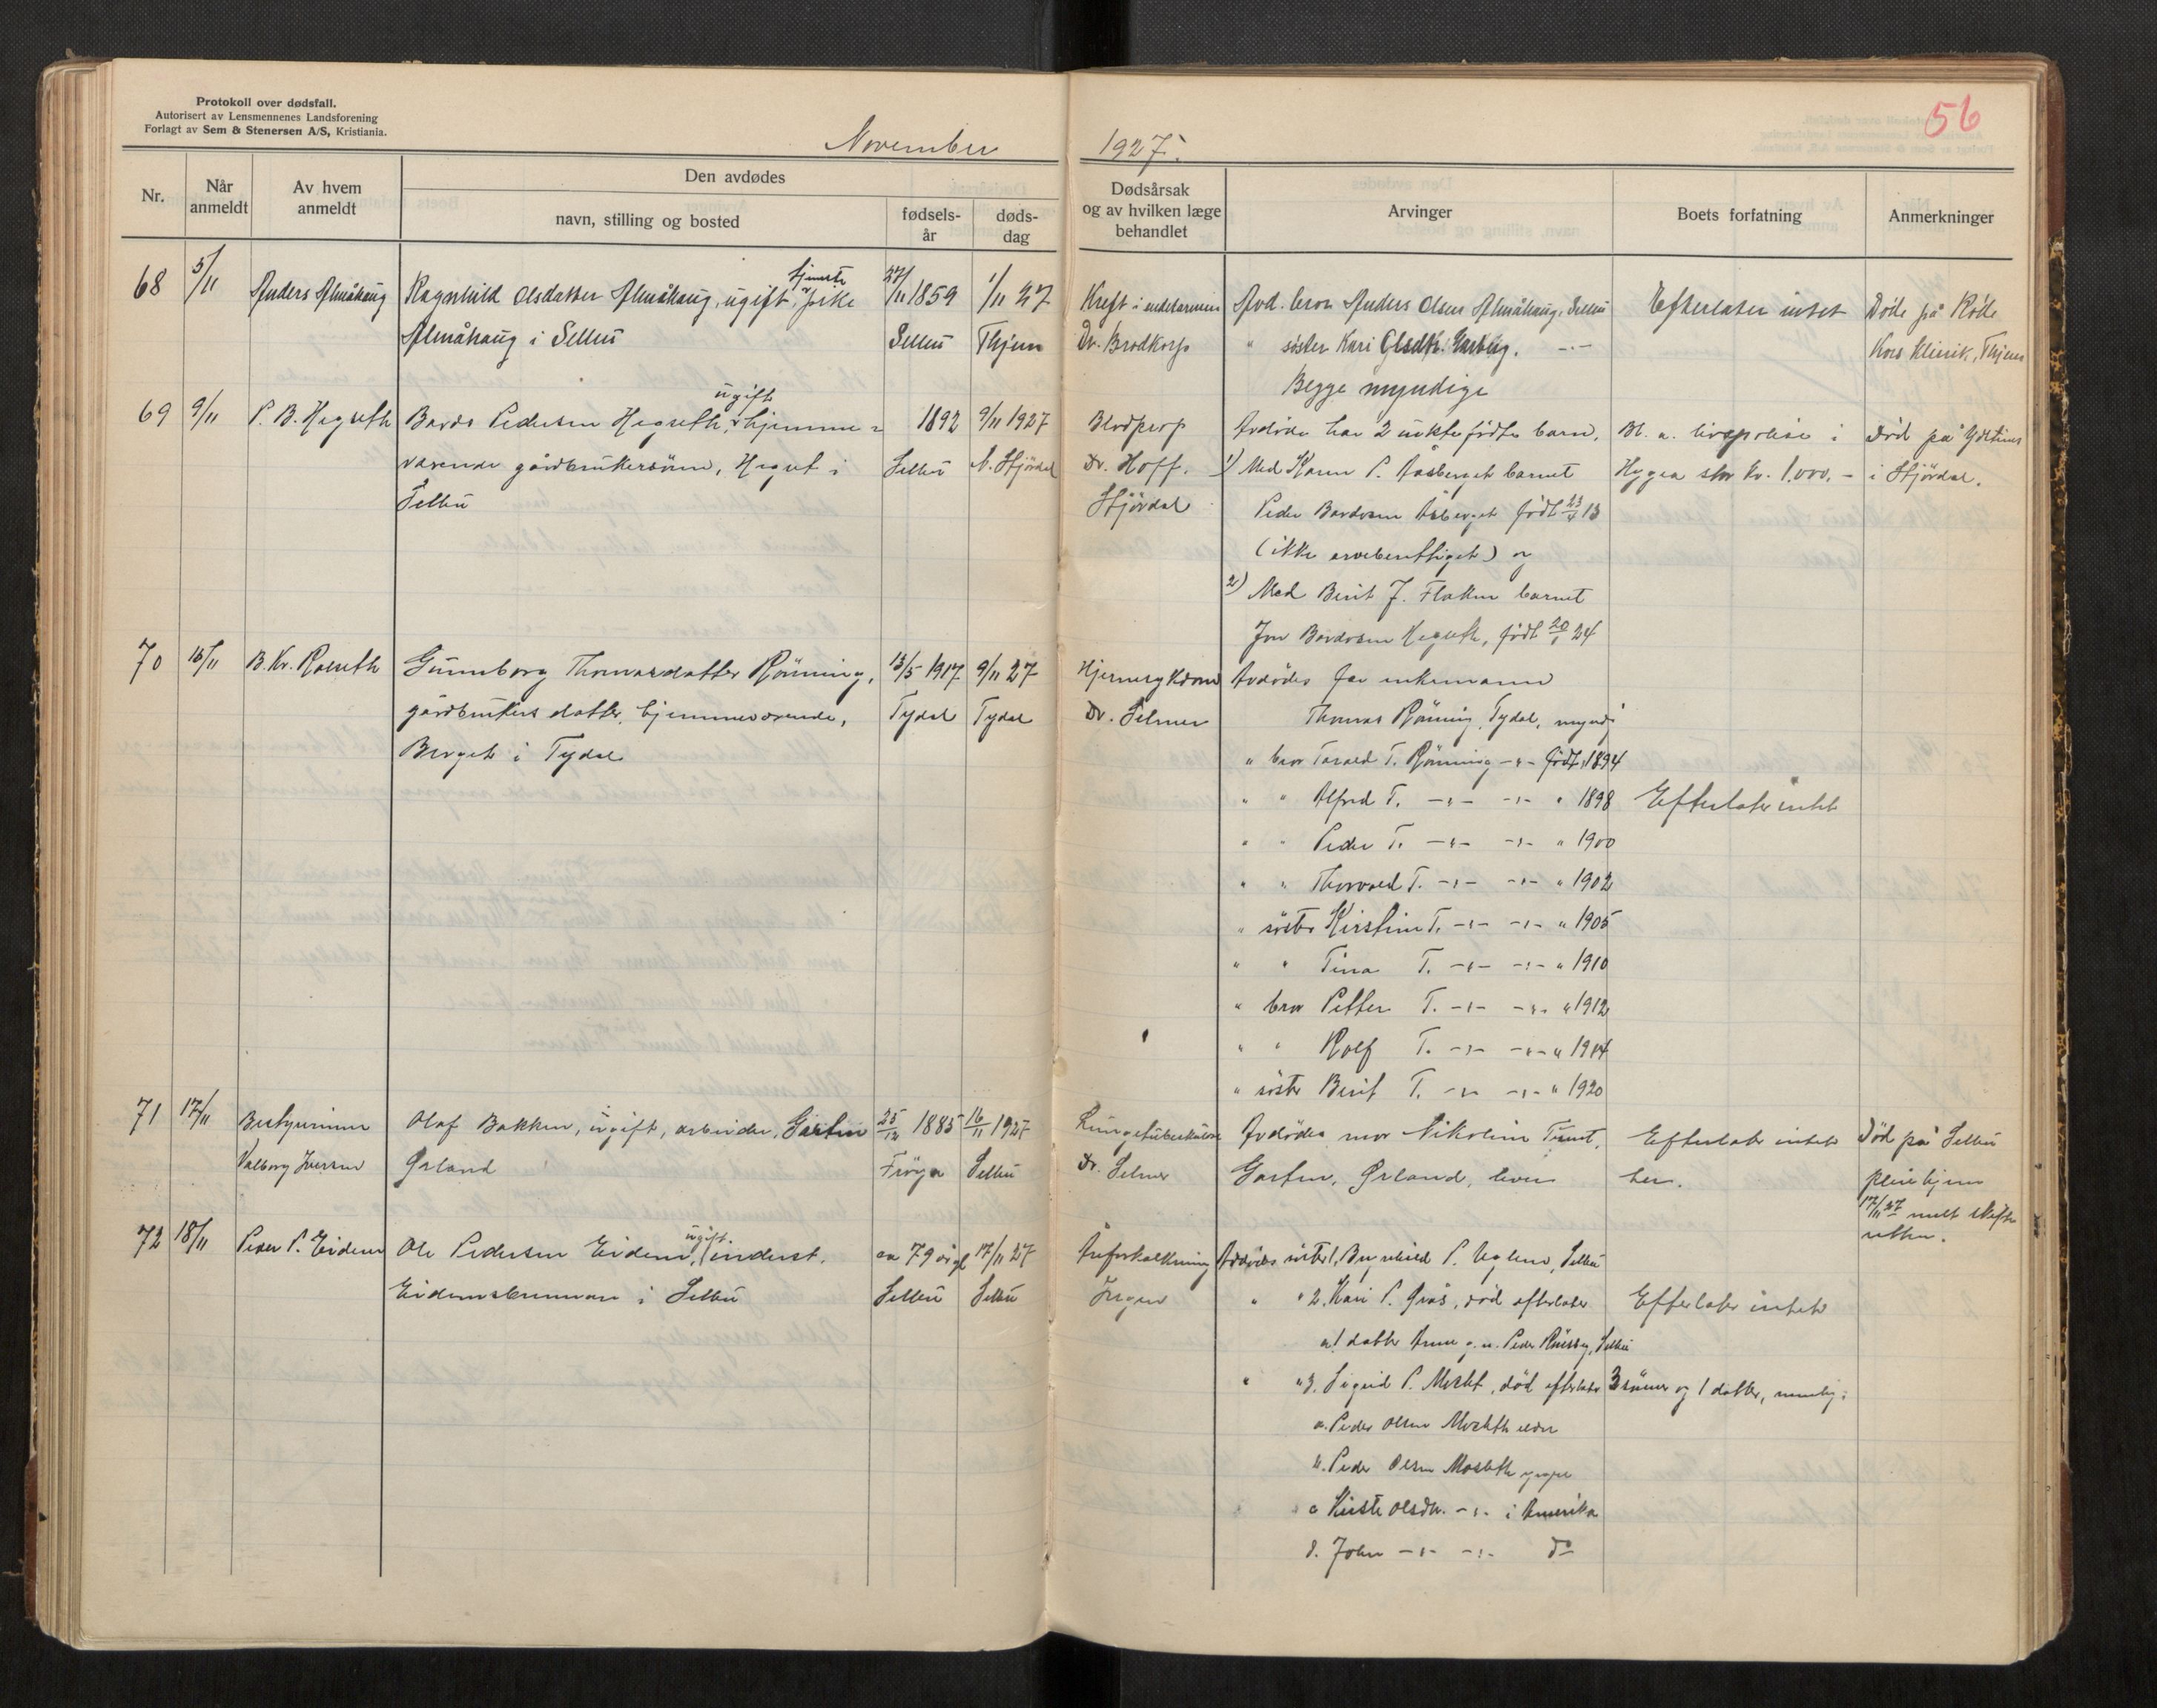 Protokoll over dødsfall.
Autorisert av Lensmennenes Landsforening
Forlagt av Sem & Stenersen A/S, Kristiania.
56
November 1927.
Nr.
Når anmeldt
Av hvem anmeldt
Den avdødes
navn, stilling og bosted
fødsels-år
døds-dag
Dødsårsak og av hvilken læge behandlet
Arvinger
Boets forfatning
Anmerkninger
68 5/11 Anders Almåhaug Ragnhild Olsdatter Almåhaug, ugift, 27/11 1859 1/11 27 Kreft i endetarmen Avd. bror Anders Olsen Almåhaug, Selbu Efterlater intet Døde på Røde
Almåhaug i Selbu Selbu Thjem Dr. Brodkorp " søster Kari Olsdtr. Garberg. -"- Kors Klinik, Thjem
Begge myndige
ugift
69 9/11 P. B. Hegseth Bardo Pedersen Hegseth, hjemme= 1892 9/11 1927 Blodprop Avdøde har 2 uekte fødte barn. Bl. a. livspolise i Død på Ydstines
værende gårdbrukersønn, Hegset i Selbu N. Stjørdal Dr. Hoff. 1) Med Karen P. Aasberget barnet Hygea stor kr. 1.000.- i Stjørdal.
Selbu Stjørdal Peder Bardosen Åsberget født 23/4 13
(ikke arveberettiget) og
2) Med Berit J. Flaken barnet
Jon Bardosen Hegseth, født 20/1 24
70 16/11 B. Kr. Rolseth Gunnborg Thomasdatter Rønning, 13/5 1917 9/11 27 Hjernesykdom Avdødes far enkemann
gårdbrukers datter, hjemmeværende, Tydal Tydal Dr. Selmer Thomas Rønning, Tydal, myndi
Berget i Tydal
" bror Tarald T. Rønning -"- født 1894
" " Alfred T. -"- -"- " 1898 Efterlater intet
" " Peder T. -"- -"- " 1900
" " Thorvald T. -"- -"- " 1902
" søster Kirstine T. -"- -"- " 1905
" " Tina T. -"- -"- " 1910
" bror Petter T. -"- -"- " 1912
" " Rolf T. -"- -"- " 1914
" søster Berit T. -"- -"- " 1920
71 17/11 Bestyrerinne Olaf Bakken, ugift, arbeider, Garten 25/12 1885 16/11 1927 Lungetuberkulose Avdødes mor Nikoline Garten, Ørland, lever Efterlater intet Død på Selbu
Valborg Iversen Ørland Frøya Selbu Dr. Selmer her. pleiehjem
17/11 27 meldt skifte
retten.
ugift.
72 18/11 Peder P. Eidem Ole Pedersen Eidem, inderst. ca 79 år gl 17/11 27 Åreforkalkning Avdødes søster 1. P. Uglem, Selbu
Eidemsbrennan i Selbu Selbu Selbu Ingen " " 2. Kari P. GråS, død efterlater Efterlater intet
a 1 datter Anne g. m. Peder Selbu
" " 3. Sigrid P. Moslet, død efterlater 3 sønner og 1 datter, nemlig:
a. Peder Olsen Mosleth eldre
b. Peder Olsen Mosleth yngre
c Kirsti Olsdtr. -"- i Amerika
d. John -"- -"- do